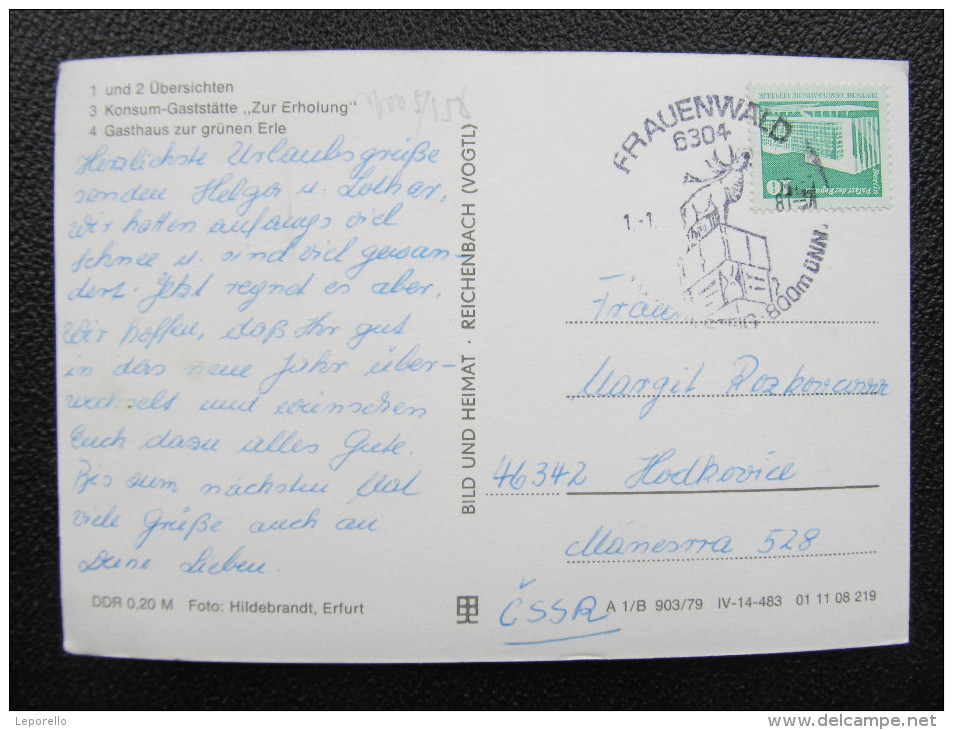 1 und 2 Übersichten
3 Konsum-Gaststätte „Zur Erholung"
4 Gasthaus zur grünen Erle
Herzlichste Urlaubsgrüße
senden Helga u. Lothar,
wir hatten anfangs viel
Schnee u. sind viel gewan-
dert. Jetzt regnet es aber.
Wir hoffen, daß Ihr gut
in das neue Jahr über-
wechselt und wünschen
Euch dazu alles Gute.
Bis zum nächsten Mal
viele Grüße auch an
Deine Lieben.
DDR 0,20 M Foto: Hildebrandt, Erfurt
BILD UND HEIMAT · REICHENBACH (VOGTL)
FRAUENWALD
6304
1.-1.
800m ÜNN.
DEUTSCHE DEMOKRATISCHE REPUBLIK
10
Berlin
Palast der Republik
Frau
Margit Rozkovanna
46342 Hodkovice
Mánesrra 528
ČSSR
A 1/B 903/79 IV-14-483 01 11 08 219
Leporello
www.delcampe.net